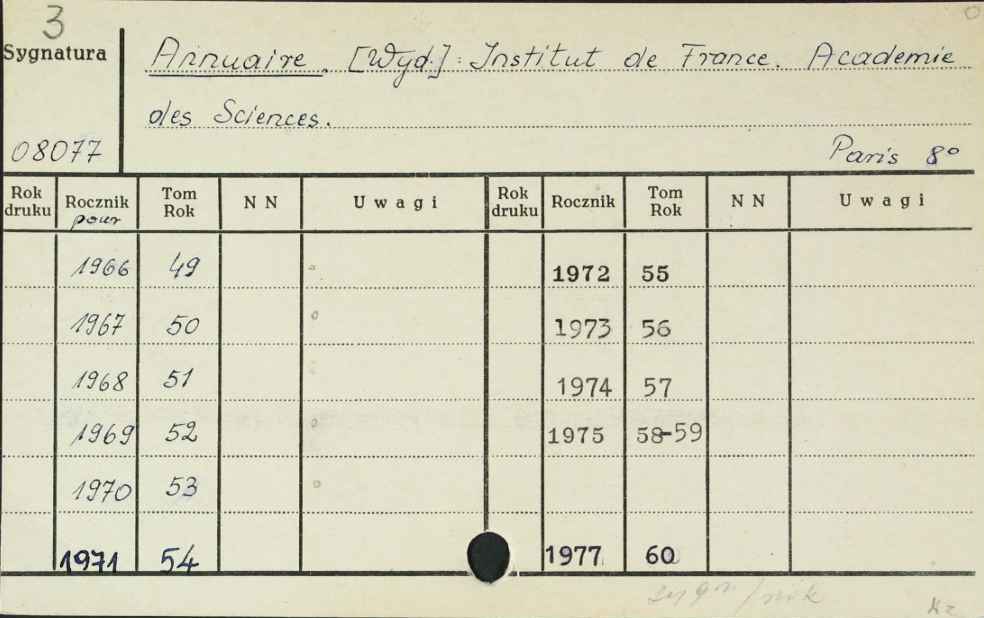 3
Sygnatura
Annuaire. [Wyd.]: Institut de France. Academie
des Sciences.
08077
Paris 8°
Rok druku Rocznik pour Tom Rok NN Uwagi Rok druku Rocznik Tom Rok NN Uwagi
1966 49 1972 55
1967 50 1973 56
1968 51 1974 57
1969 52 1975 58-59
1970 53
1971 54 1977 60